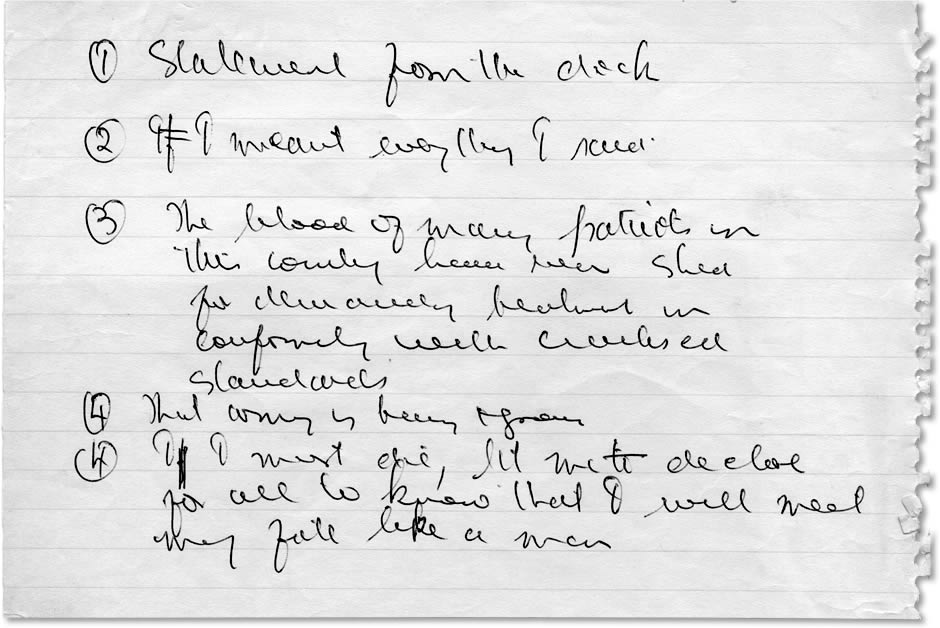 ① Statement from the dock
② If I meant everything I said
③ The blood of many patriots in
this country have been shed
for demanding treatment in
conformity with civilised
standards
④ That army is being & grown
④ If I must die, let me to declare
for all to know that I will meet
my fate like a man